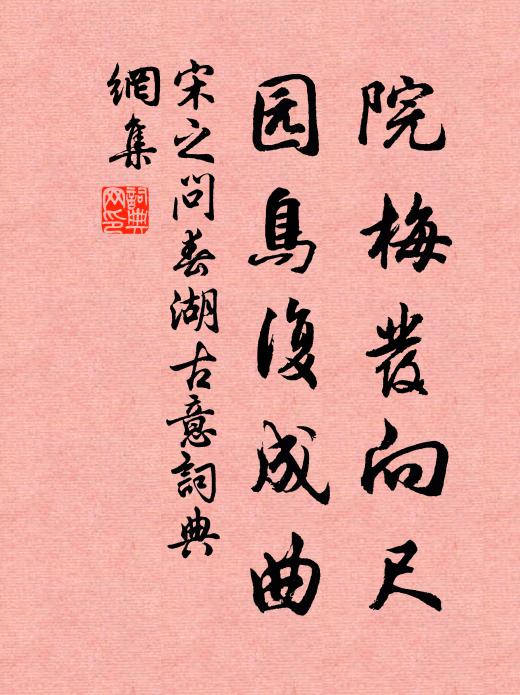 院梅發向尺
园鳥復成曲
宋之问春湖古意詞典
網集
詞典
网印